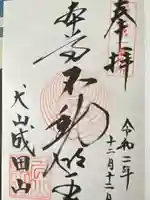 奉拝
令和二年
十二月十二日
本尊不動明王
犬山成田山